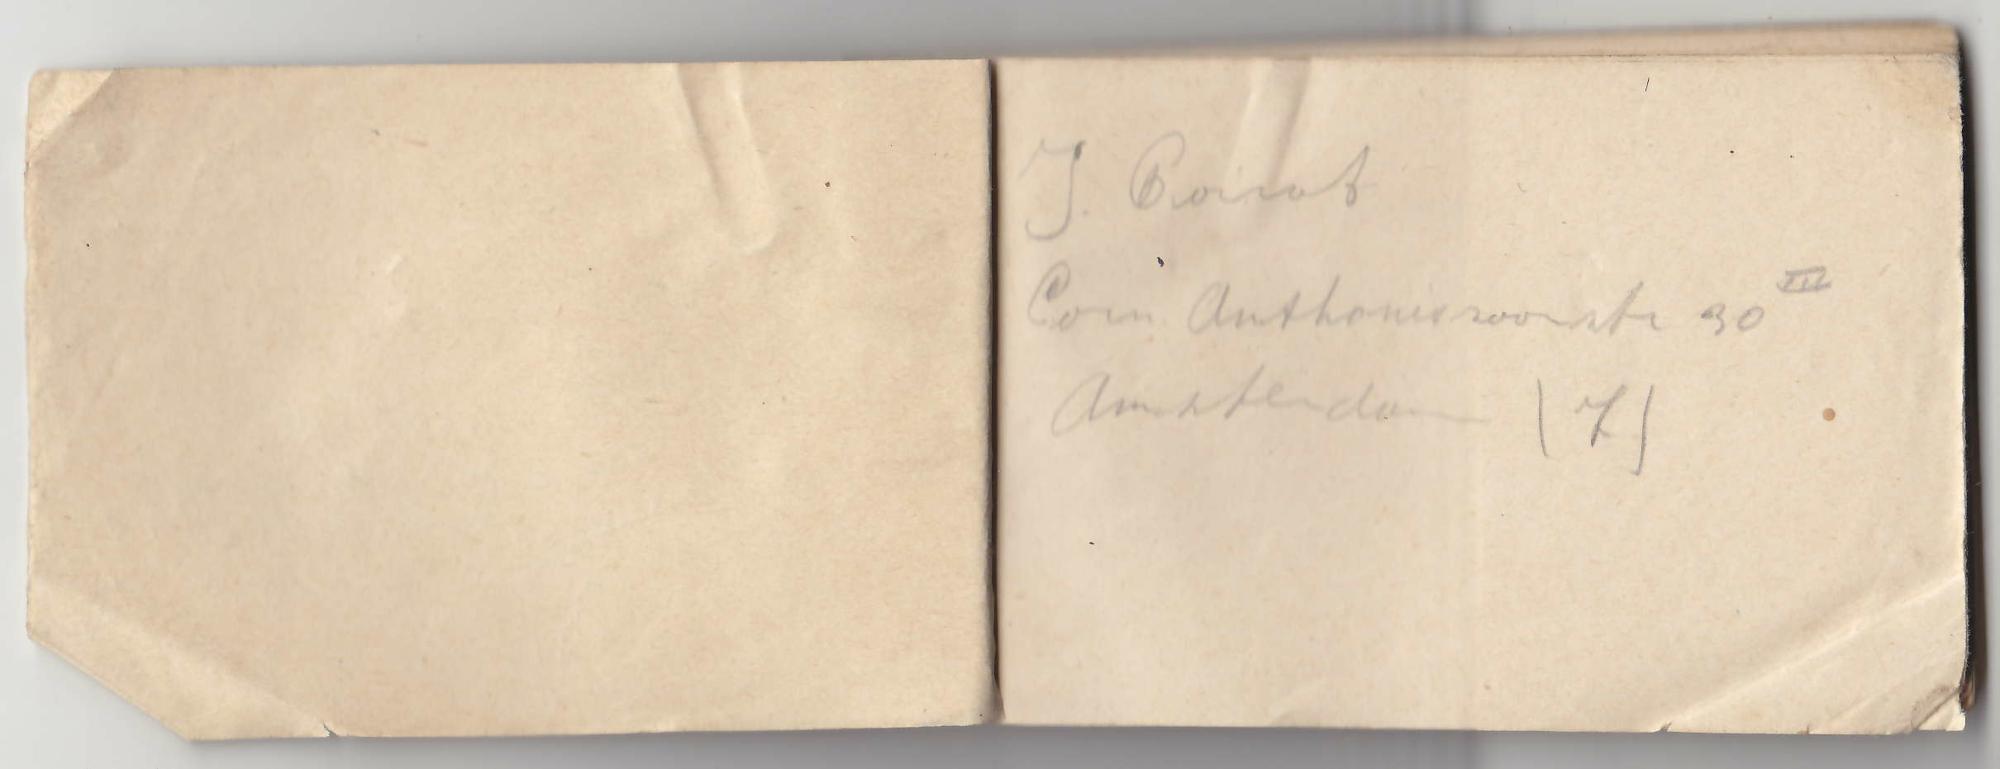 J. Poirot
Corn Anthoniszoonstr 30 III
Amsterdam (Z)